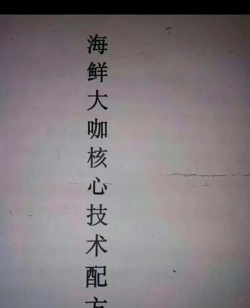 海鲜大咖核心技术配方